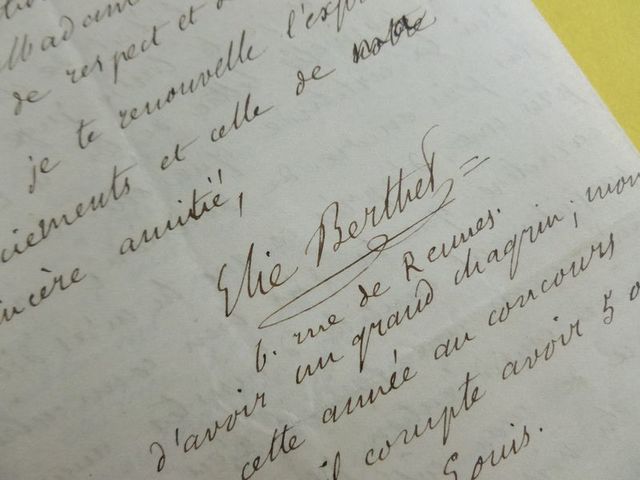 Madame
de respect et d
je te renouvelle l'exp
ciements et celle de notre
incère amitié,
Elie Berthet
6. rue de Rennes.
d'avoir un grand chagrin; mon
cette année au concours
il compte avoir 5 o
Louis.